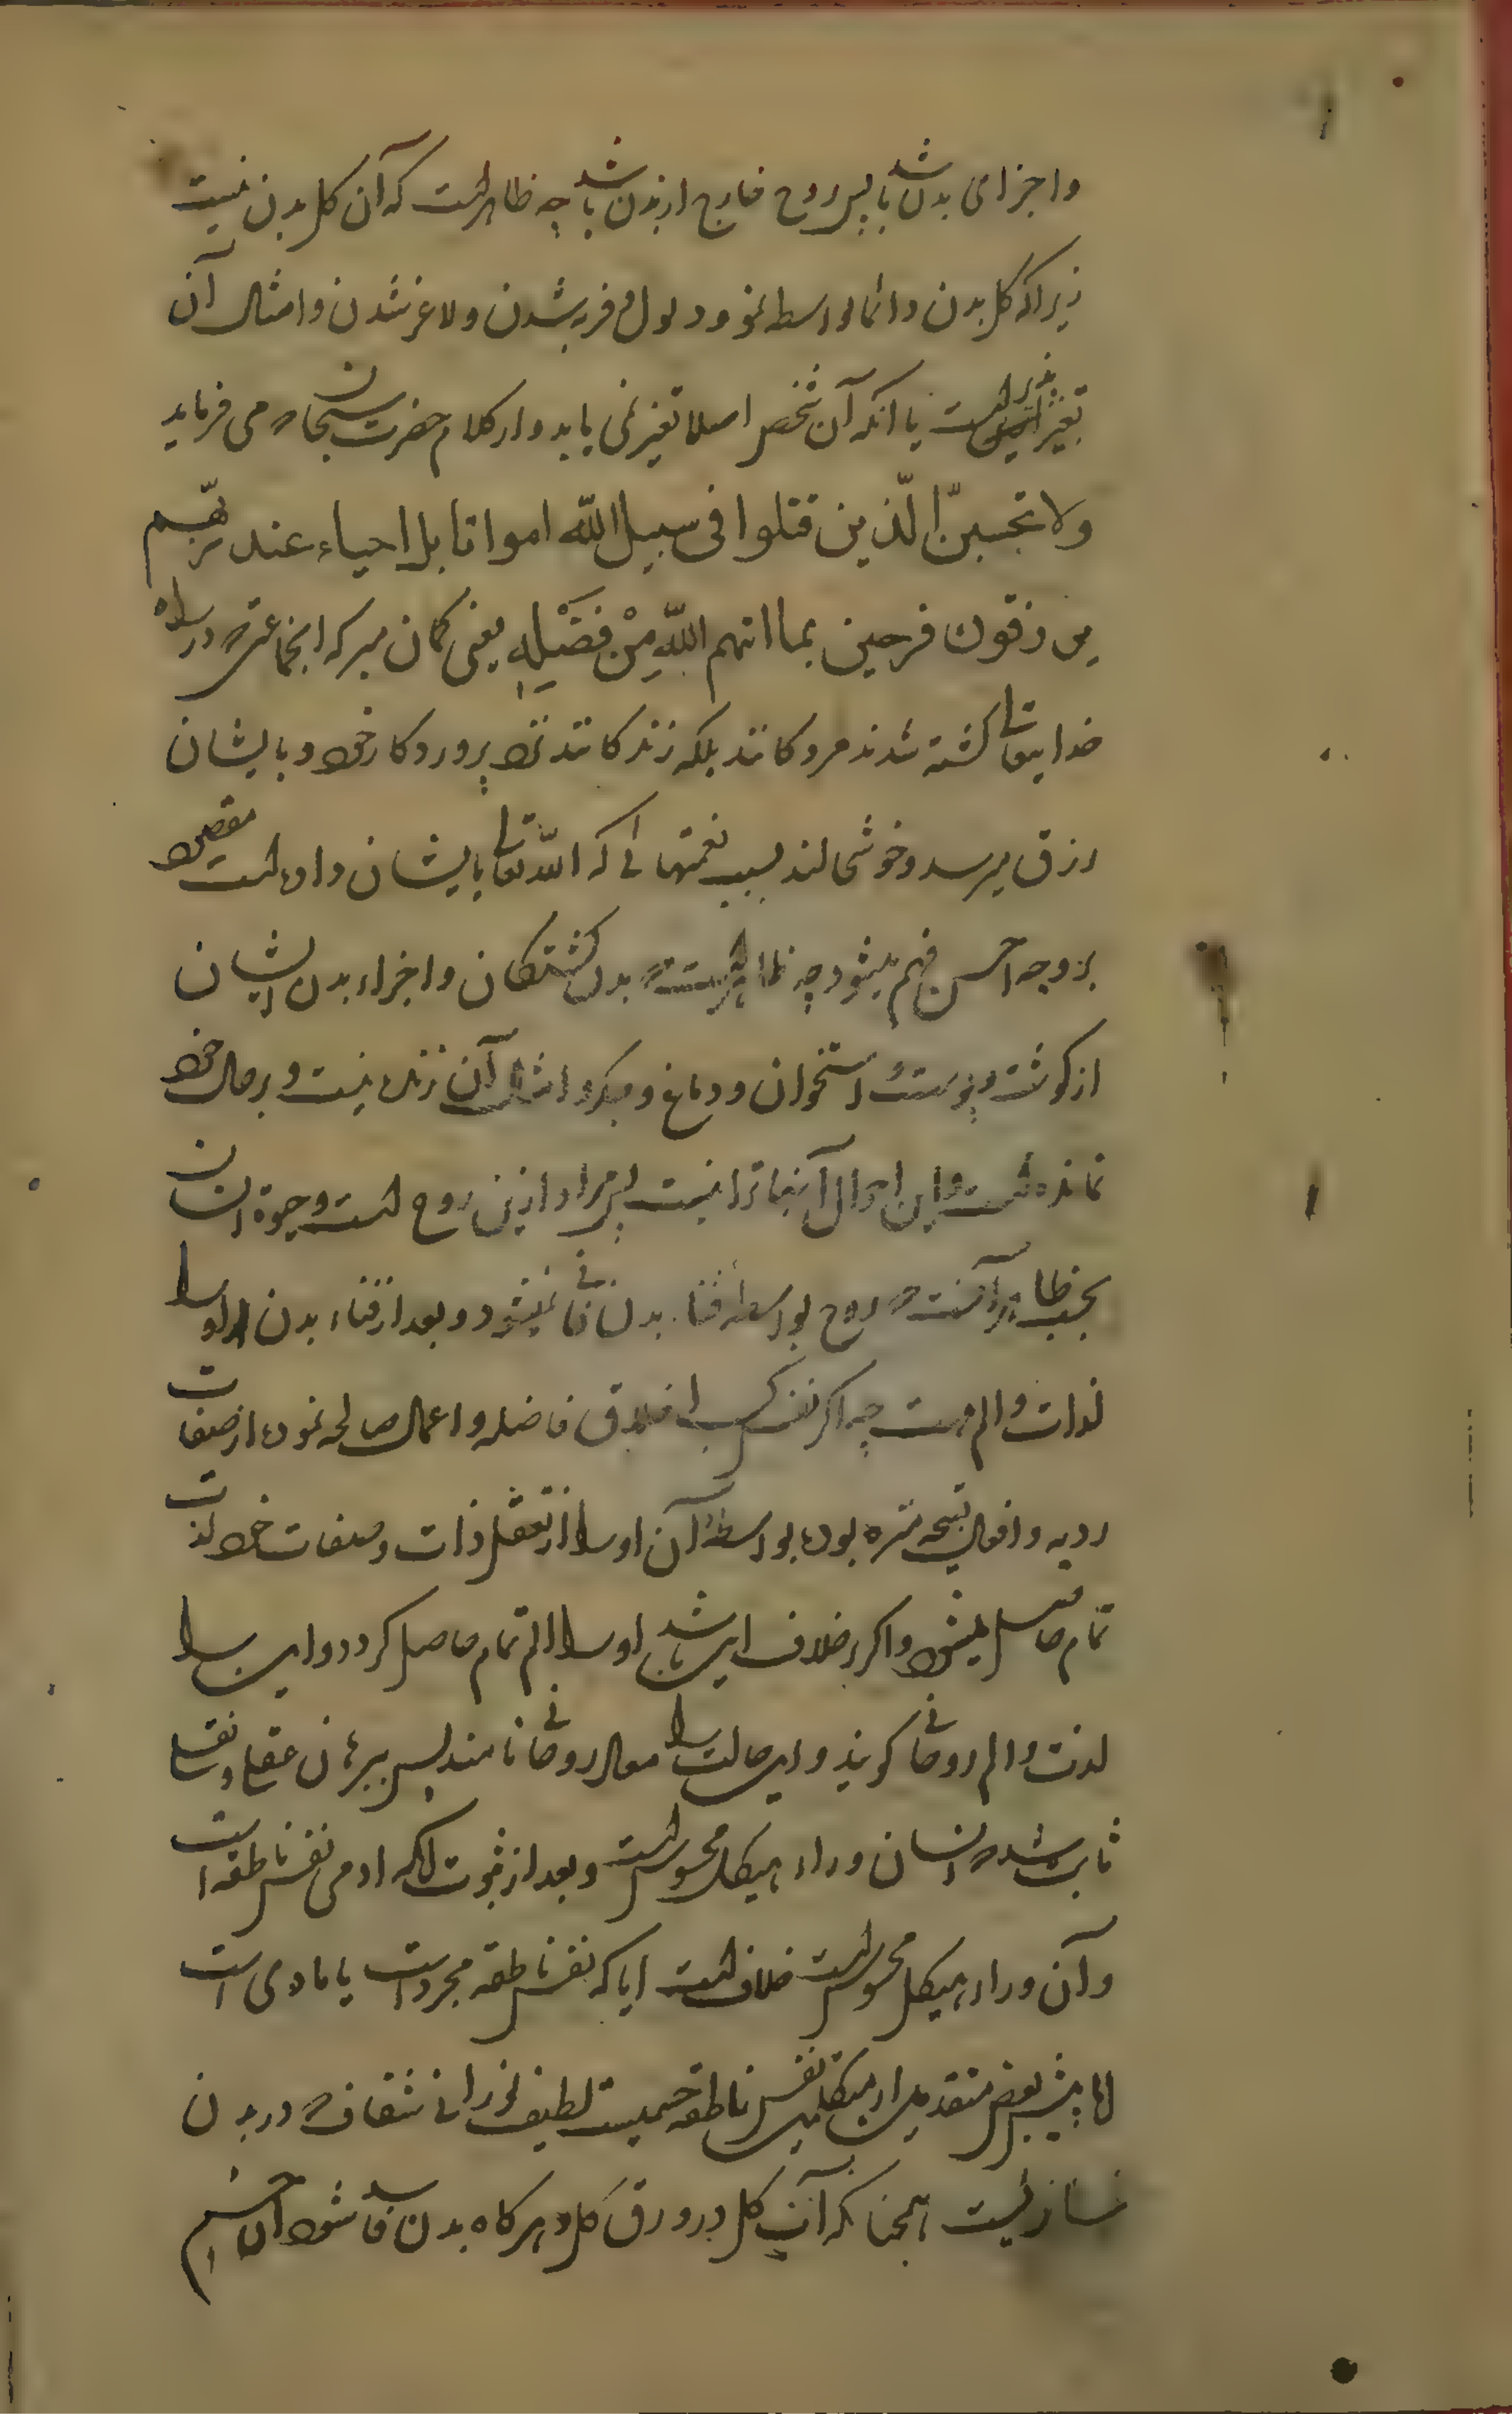 و اجزای بدن باشد پس روح خارج از بدن باشد چه ظاهرست که آن کل بدن نیست
زیرا که کل بدن دائما بواسطه نمو و ذبول و فربه شدن و لاغر شدن و امثال آن
تغیر پذیرست با آنکه آن شخص اصلا تغیر نمی یابد و از کلام حضرت سبحان که می فرماید
ولا تحسبنّ الّذین قتلوا فی سبیل اللّه امواتا بل احیاء عند ربّهم
یرزقون فرحین بما اتهم اللّه مِنْ فَضْلِهِ یعنی کمان مبر که انجماعتی که در راه
خدایتعالی کشته شدند مردکانند بلکه زندکانند نزد پروردکار خود و بایشان
رزق میرسد و خوشحالند بسبب نعمتهائی که اللّه تعالی بایشان داده است مقصود
بر وجه احسن فهم میشود چه ظاهرست که بدن کشتکان و اجزاء بدن ایشان
از کوشت و پوست و استخوان و دماغ و جکر و امثال آن زنده نیست و بر حال خود
نمانده است و این احوال آنها را نیست پس مراد ازین روح است و حیوة انسان
بحسب ظاهر آنست که روح بواسطه فناء بدن فانی نمیشود و بعد از فناء بدن او را
لذات و الم هست چه اکر نفس کسب اخلاق فاضله و اعمال صالحه نموده از صفات
ردیه و افعال قبیحه منزه بوده بواسطه آن او را از تعقل ذات و صفات خود لذت
تمام حاصل میشود و اکر بر خلاف این باشد او را الم تمام حاصل کردد و این را
لذت و الم روحانی کویند و این حالت را معاد روحانی نامند پس ببرهان عقلی و نقلی
ثابت شد که انسان وراء هیکل محسوس است و بعد از ثبوت آنکه ادمی نفس ناطقه است
و آن وراء هیکل محسوس است خلاف است ایا که نفس ناطقه مجرد است یا مادی است
اما پیش بعض متقدمین از متکلمین نفس ناطقه جسمیست لطیف نورانی شفاف که در بدن
ساریست همچنانکه آب کل در ورق کل و هرکاه بدن فاسد شود آن جسم